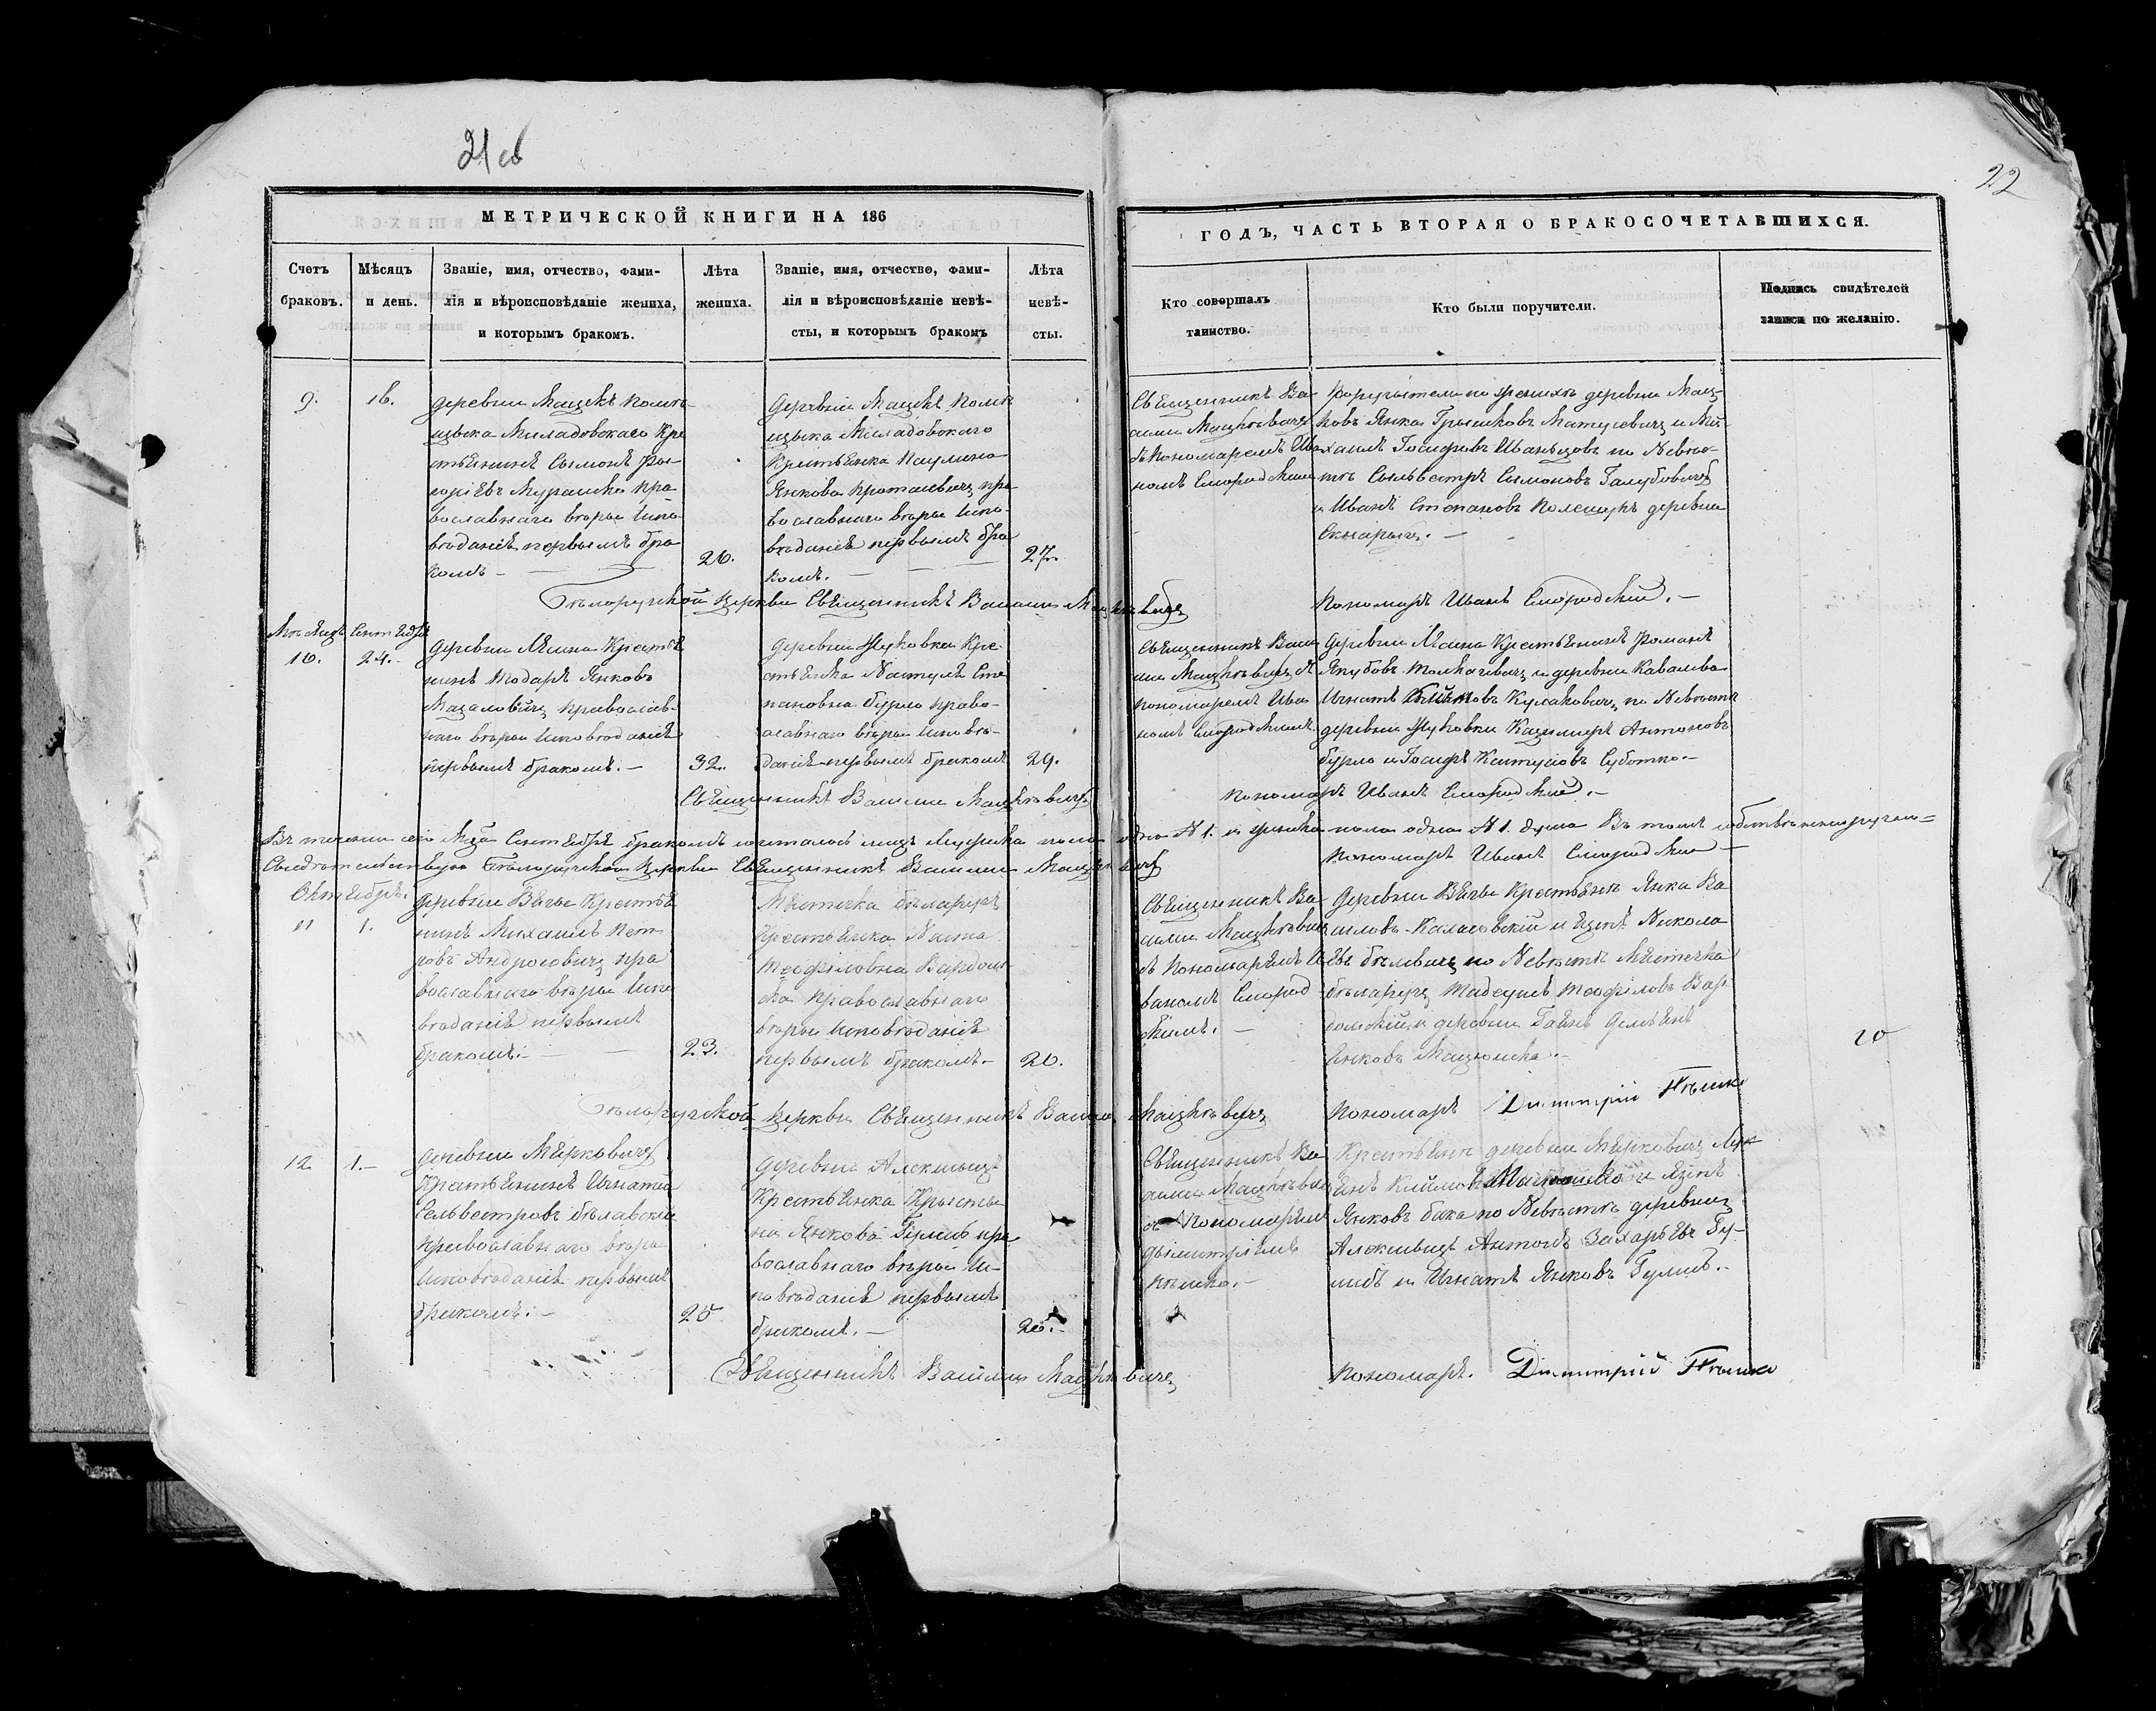 21 об
22
МЕТРИЧЕСКОЙ КНИГИ НА 186
ГОДЪ, ЧАСТЬ ВТОРАЯ О БРАКОСОЧЕТАВШИХСЯ.
Счетъ
браковъ.
Мѣсяцъ
и день.
Званіе, имя, отчество, фами-
лія и вѣроисповѣданіе жениха,
и которымъ бракомъ.
Лѣта
жениха.
Званіе, имя, отчество, фами-
лія и вѣроисповѣданіе невѣ-
сты, и которымъ бракомъ
Лѣта
невѣ-
сты.
Кто совершалъ
таинство.
Кто были поручители.
Подпись свидѣтелей
записи по желанію.
9.
16.
деревни Мацекъ помѣ-
щыка Миладовскаго Кре
стьянинъ Сымонъ
горіевъ Мурашко пра
вославнаго вѣры испо
вѣданіе первымъ бра
комъ
26.
деревни Мацекъ помѣ
щыка Миладовскаго
Крестьянка Паулина
Янкова пра
вославнаго вѣры испо-
вѣданіе первымъ бра
комъ.
27.
Священникъ Ва
силий Мацкевичъ
съ Пономаремъ Ива
номъ Смородскимъ
Поручители по женихъ деревни Мац-
ковъ Янка Грышковъ Матусевичъ и Ми
хаилъ Іосифовъ Иванцовъ по Невѣс-
тѣ Сыльвестръ Сымоновъ Галубовичъ
и Иванъ Степановъ Полещукъ деревни
Бѣларучской Церкви Священникъ Василий Мацкевичъ
Пономаръ Иванъ Смородский.
Мѣсяцъ Сентябръ
10.
24.
деревни Крестья
нинъ Тодаръ Янковъ
Мацаловичъ православ-
наго вѣры исповѣданіе
первымъ бракомъ.
32.
деревни Жуковки Кре-
стьянка Настуля Сте
пановна Бурло право-
славнаго вѣры исповѣ-
даніе первымъ бракомъ
29.
Священникъ Васи
лий Мацкевичъ съ
пономаремъ Ива
номъ Смородскимъ
деревни Крестьянинъ Романъ
Якубовъ Толкачевичъ и деревни Кавалева
Игнатъ Кулаковичъ, по Невѣстѣ
деревни Жуковки Казимиръ Антоновъ
Бурло и Іосифъ Суботко.
Священникъ Василий Мацкевичъ
пономаръ Иванъ Смородский.
Въ течении сего Мца Сентября бракомъ сочеталось лицъ Мужеска пола одно №1. и женска пола одна №1. Въ томъ собственноручно
Свидѣтельствую Бѣларучской Церкви Священникъ Василий Мацкевичъ
Пономаръ Иванъ Смородский
Октября.
11
1.
деревни Вячы Крестья
нинъ Михаилъ Пет-
ровъ Андросовичъ пра
вославнаго вѣры испо
вѣданіе первымъ
бракомъ.
23.
Мястечка Бѣларучъ
Крестьянка Настя
Теофиловна Вардом-
ска православнаго
вѣры исповѣданіе
первымъ бракомъ.
20.
Священникъ Ва
силий Мацкевичъ
съ пономаремъ И
ваномъ Смород
скимъ.
деревни Вячы Крестьяне Янка Ва
силовъ Каласовский и Яцукъ Никола
евъ Бѣлевичъ по Невѣстѣ Мястечка
Бѣларучъ Тадеушъ Теофиловъ Вар
домский, и деревни Гаянъ Демьянъ
Янковъ Мацюшка.
20
Бѣларучской Церкви Священникъ Василий Мацкевичъ
пономаръ Димитрій Пѣшко
12
1.
деревни Мярковичъ
Крестьянинъ Игнатій
Сельвестровъ Бѣлавский
православнаго вѣры
исповѣданіе первымъ
бракомъ.
25
деревни Алекшицъ
Крестьянка Крысты
на Янкова Гулисъ пра
вославнаго вѣры ис-
повѣданіе первымъ
бракомъ.
20.
Священникъ Ва
силий Мацкевичъ
съ пономаремъ
Дымитріемъ
Пѣшко.
Крестьяне деревни Мярковичъ Лук
янъ Климовъ и Яцукъ
Янковъ Бака по Невѣстѣ деревни
Алекшицъ Антонъ Захарьевъ Гу-
лисъ и Игнатъ Янковъ Гулисъ.
Священникъ Василий Мацкевичъ
Пономаръ. Димитрій Пѣшко